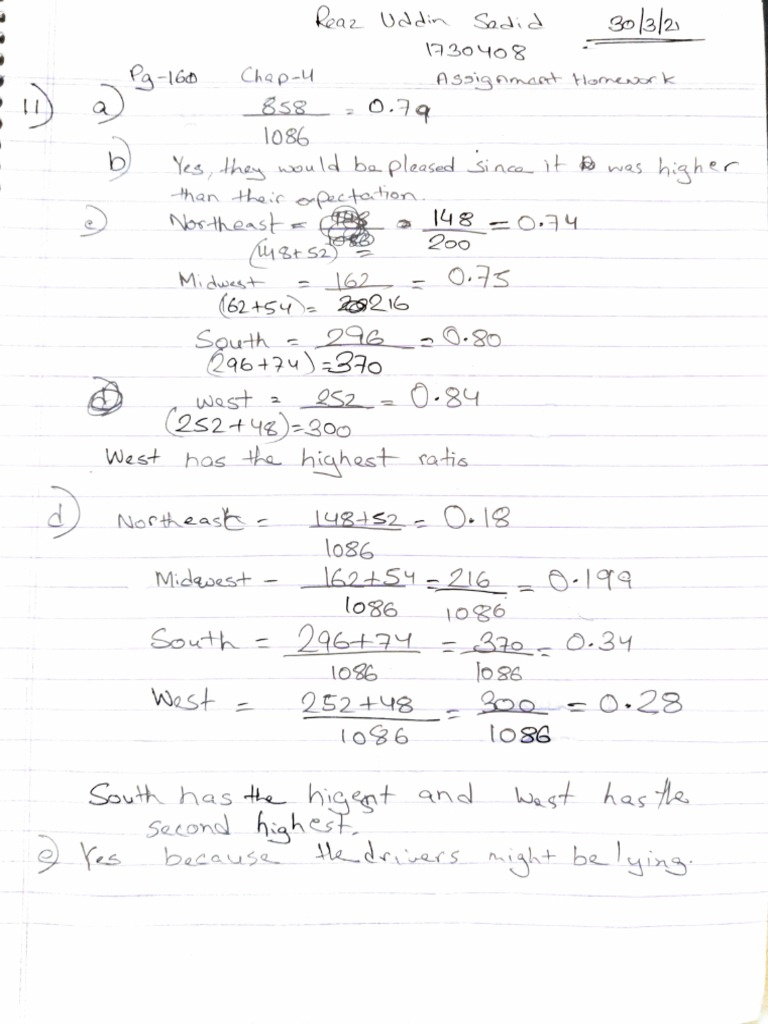 Reaz Uddin Sadid 30/3/21
1730408
Pg-160 Chap-4 Assignment Homework
11) a) 858/1086 = 0.79
b) Yes, they would be pleased since it was higher
than their expectation.
c) Northeast = 148/200 = 0.74
(148+52) =
Midwest = 162/216 = 0.75
(62+54) =
South = 296/370 = 0.80
(296+74) =
d) West = 252/300 = 0.84
(252+48) =
West has the highest ratio
d) Northeast = 148+52/1086 = 0.18
Midwest - 162+54/1086 = 216/1086 = 0.199
South = 296+74/1086 = 370/1086 = 0.34
West = 252+48/1086 = 300/1086 = 0.28
South has the higest and West has the
second highest.
e) Yes because the drivers might be lying.